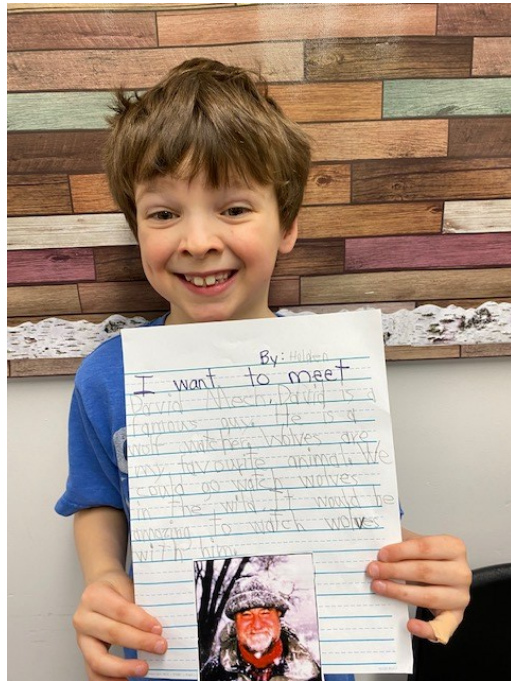 By: Holden
I want to meet
David Mech. David is a
famous guy. He is a
wolf watcher. Wolves are
my favourite animal. We
could go watch wolves
in the wild. It would be
amazing to watch wolves
with him.